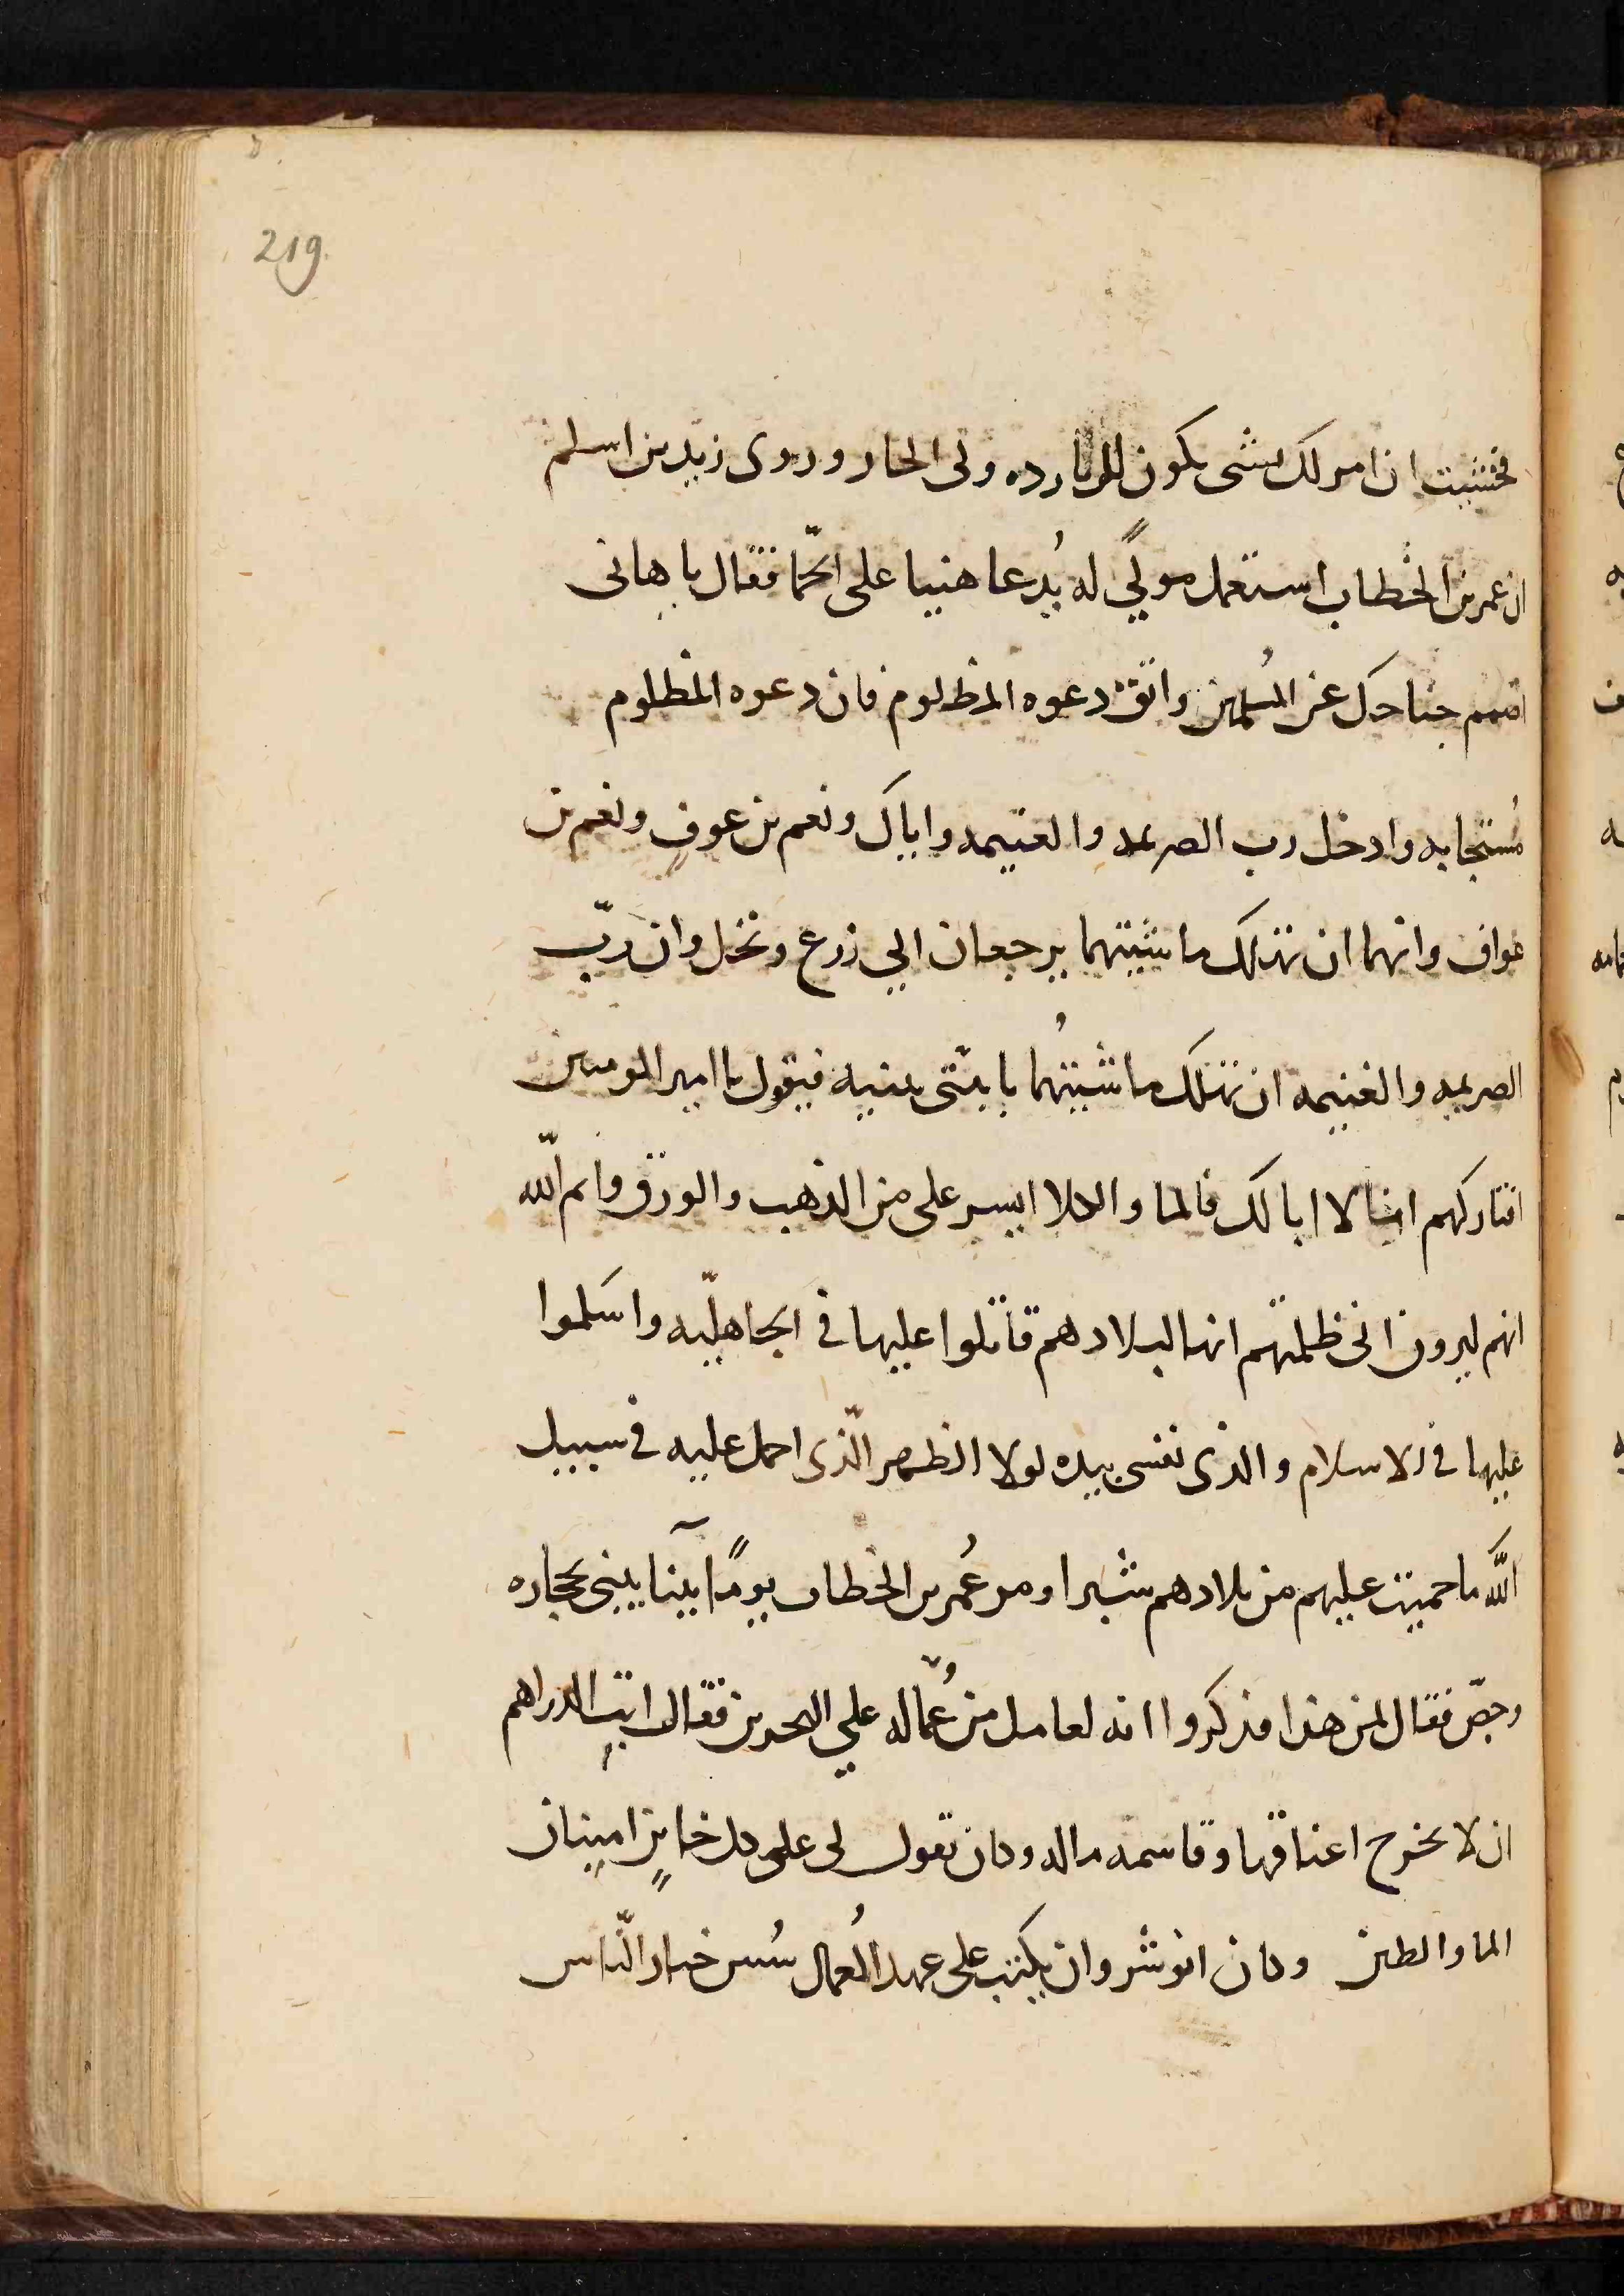 219.
فخشيت ان امر لك بشى يكون للربا رده ولى الحار وروى زيد بن اسلم
ان عمر بن الخطاب استعمل مولًى له يُدعا هنيا على الحما فقال يا هانى
اضمم جناحك عن المُسلمين واتق دعوه المظلوم فان دعوه المظلوم
مُستجابه وادخل رب الصريمه والغنيمه واياك ونعم بن عوف ونعم بن
عواف وانهما ان تهلك ماشيتهما يرجعان الي زرع ونخل وان ربّ
الصريمه والغنيمه ان تهلك ماشيتهُما ياتينى ببنيه فيقول يا امير المومنين
افتاركهم انا لا ابا لك فالما والكلا ايسر على من الذهب والورق وايم اللّه
انهم ليرون انى ظلمتهم انها لبلادهم قاتلوا عليها فى الجاهليّه واسَلموا
عليها فى الاسلام والذى نفسى بيده لولا الظهر الّذى احمل عليه فى سبيل
اللّه ما حميت عليهم من بلادهم شبرا ومر عُمر بن الخطاب يومًا آبينا يبنى بحجاره
وجصّ فقال لمن هذا فذكروا انه لعامل من عُمّاله علي البحرين فقال ابت الدراهم
ان لا تخرج اعناقها وقاسمه ماله وكان يقول لى على كل خاينٍ امينان
الما والطين وكان انوشروان يكتب على عهد العُمال سُس خيار النّاس